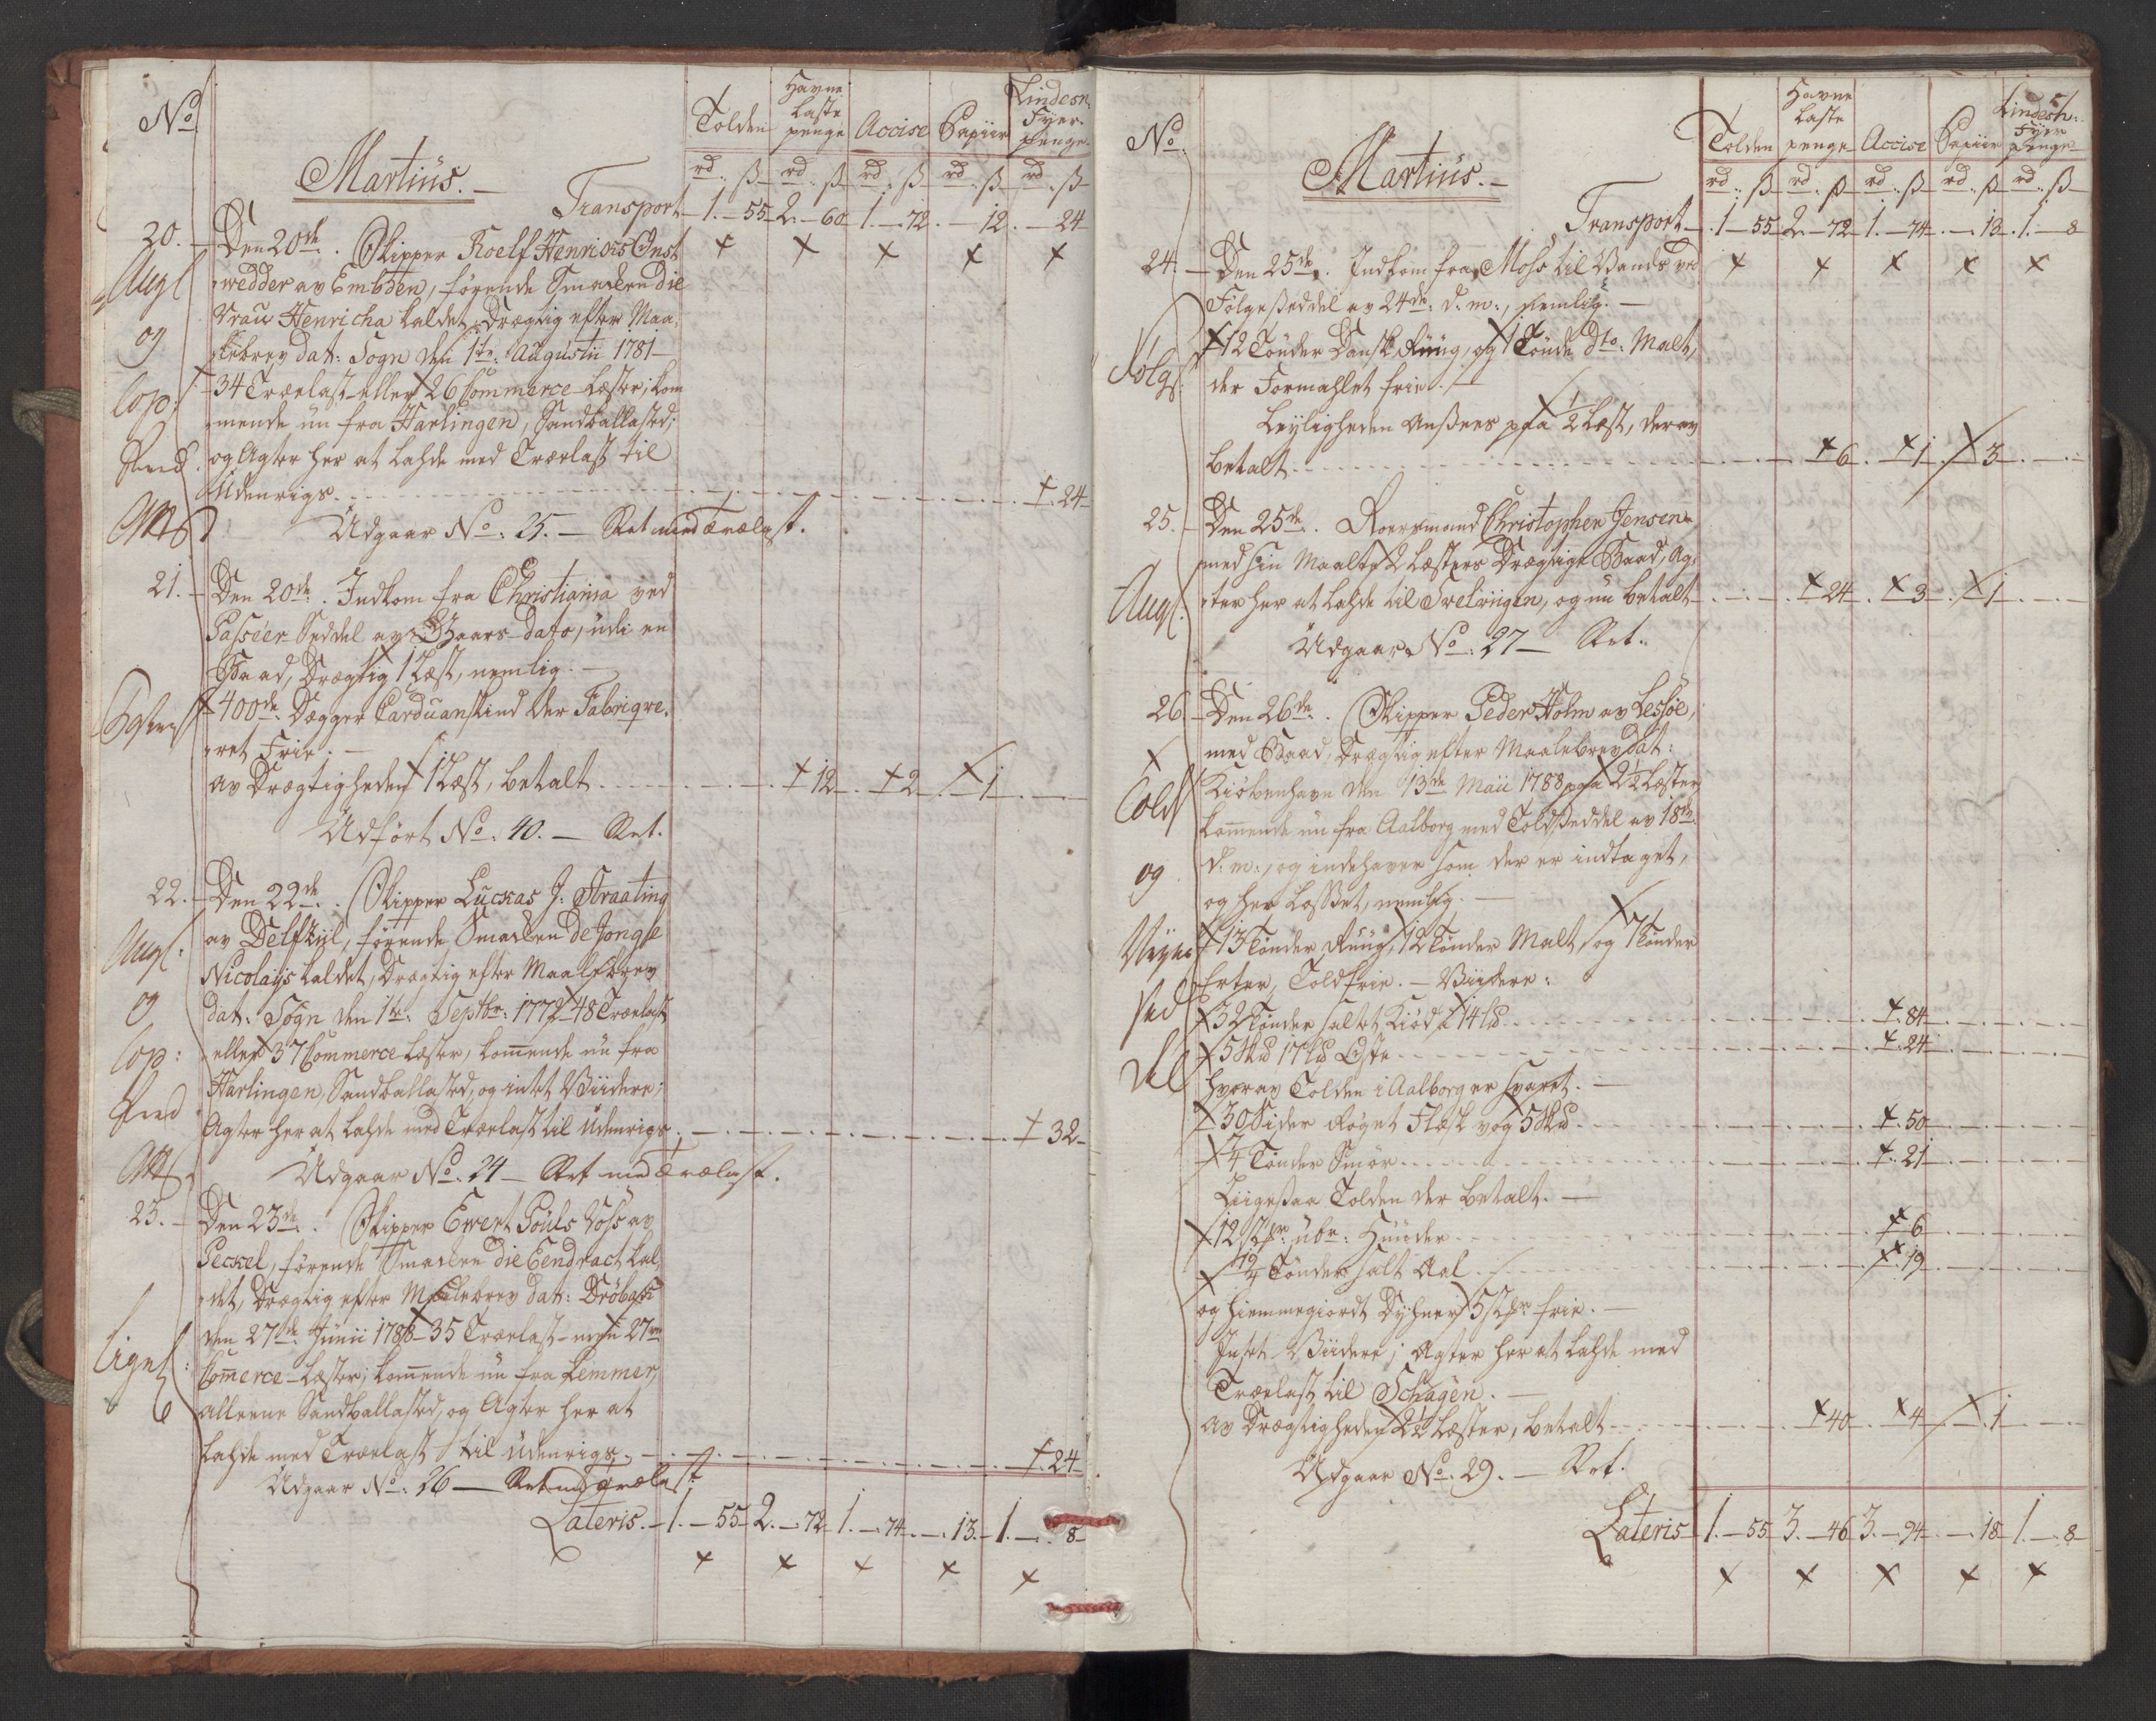 No
Tolden
Havne
Laste
penge
Accise
Papiir
Lindesn:
Fyer-
penge
Martius.
rd. ß rd. ß rd. ß rd. ß rd. ß
Transport 1.-55 2.-60 1.-72 .-12 .-24
20. Den 20de. Skipper Roelf Henrichs Onst
wedder av Embden, førende Smacken die
Vrau Henricha kaldet, Drægtig efter Maa-
lebrev dat: Sogn den 1te Augustii 1781
34 Trælast eller 26 Commerce Læster, kom
mende nu fra Harlingen, Sandballasted;
og Agter her at lahde med Trælast til
Udenrigs 24
Udgaar No: 25. - Ret med Trælast.
21. Den 20de. Indkom fra Christiania ved
Passeer-Seddel av Gaars-dato, udi en
Baad, Drægtig 1 Læst, nemlig:
400de Degger Carduanskind der Fabriqve-
ret Frie.
av Drægtigheden 1 Læst, betalt 12 2 1
Udført No: 40. - Ret.
22. Den 22de. Skipper Luckas J: Straating
av Delfziil, førende Smacken de Jonge
Nicolaijs kaldet, Drægtig efter Maalebrev
dat: Sogn den 1te Septbr: 1772 48 Trælast
eller 37 Commerce Læster, kommende nu fra
Harlingen, Sandballasted, og intet Viidere;
Agter her at lahde med Trælast til Udenrigs 32
Udgaar No: 24 - Ret med Trælast.
23. Den 23de. Skipper Ewert Pouls Voss av
Peckel, førende Smacken die Eendract kal-
det, Drægtig efter Maalebrev dat: Drøbach
den 27de Junii 1788 35 Trælast 27
Commerce-Læster; kommende nu fra Lemmer,
alleene Sandballasted, og Agter her at
lahde med Trælast til Udenrigs 24
Udgaar No: 26 - Ret med Trælast
Lateris. 1.-55 2.-72 1.-74 .-13 1.-8
No.
Tolden
Havne
Laste
penge
Accise
Papiir
Lindesn:
Fyer
penge
Martius.
rd. ß rd. ß rd. ß rd. ß rd. ß
Transport 1-55 2-72 1.-74 .-13 1.-8
24. Den 25de. Indkom fra Moss til Vands ved
Følgeseddel av 24de d: m:, nemlig:
12 Tønder Dansk Rüüg, og 1 Tønde dto: Malt,
der Formahlet frie.
Leyligheden ansees paa 1/2 Læst, derav
betalt 6 1 3
25. Den 25de. Roersmand Christopher Jensen
med sin Maalte 2 Læsters Drægtige Baad, Ag-
ter her at lahde til Svelviigen, og nu betalt 24 3 1
Udgaar No: 27 - Ret.
26. Den 26de. Skipper Peder Holm av Lessøe,
med Baad, Drægtig efter Maalebrev dat:
Kiøbenhavn den 13de Maii 1788 paa 2 1/2 Læster
kommende nu fra Aalborg med Toldseddel av 18de
d: m:, og indehaver som der er indtaget,
og her losset, nemlig:
13 Tønder Rüüg, 12 Tønder Malt, og 7 Tønder
Erter, Toldfrie. - Viidere:
32 Tønder saltet Kiød a 14 L℔ 84
5 Sk℔ 17 L℔ Oste 24
hvorav Tolden i Aalborg er svaret.
30 Sider Røget Flesk vog 5 Sk℔ 50
7/4 Tønder Smør 21
Liigesaa Tolden der betalt.
12 Huuder 6
19/4 Tønder salt Aal 19
og hiemmegiordt Dyhner 5 frie.
Intet Viidere; Agter her at lahde med
Trælast til Schagen.
av Drægtigheden 2 1/2 Læster, betalt 40 4 1
Udgaar No: 29. - Ret.
Lateris 1.-55 3.-46 3.-94 .-18 1.-8